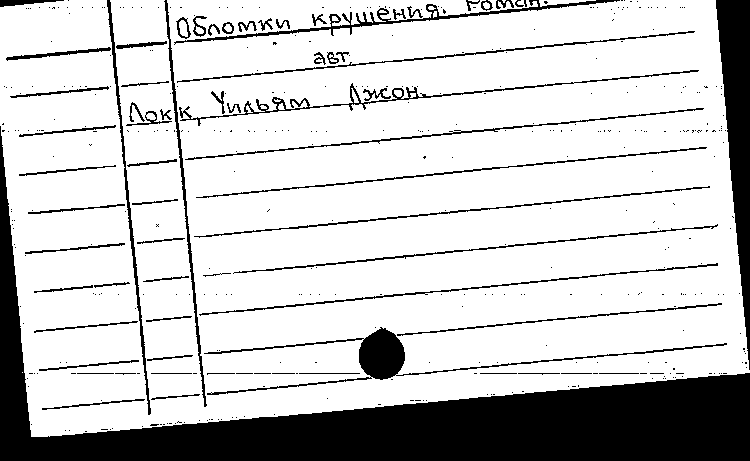 Обломки крушения. Роман.
авт.
Локк, Уильям Джон.